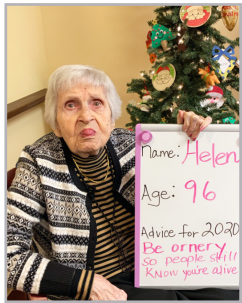 name: Helen
Age: 96
Advice for 2020
Be ornery
so people still
know you're alive